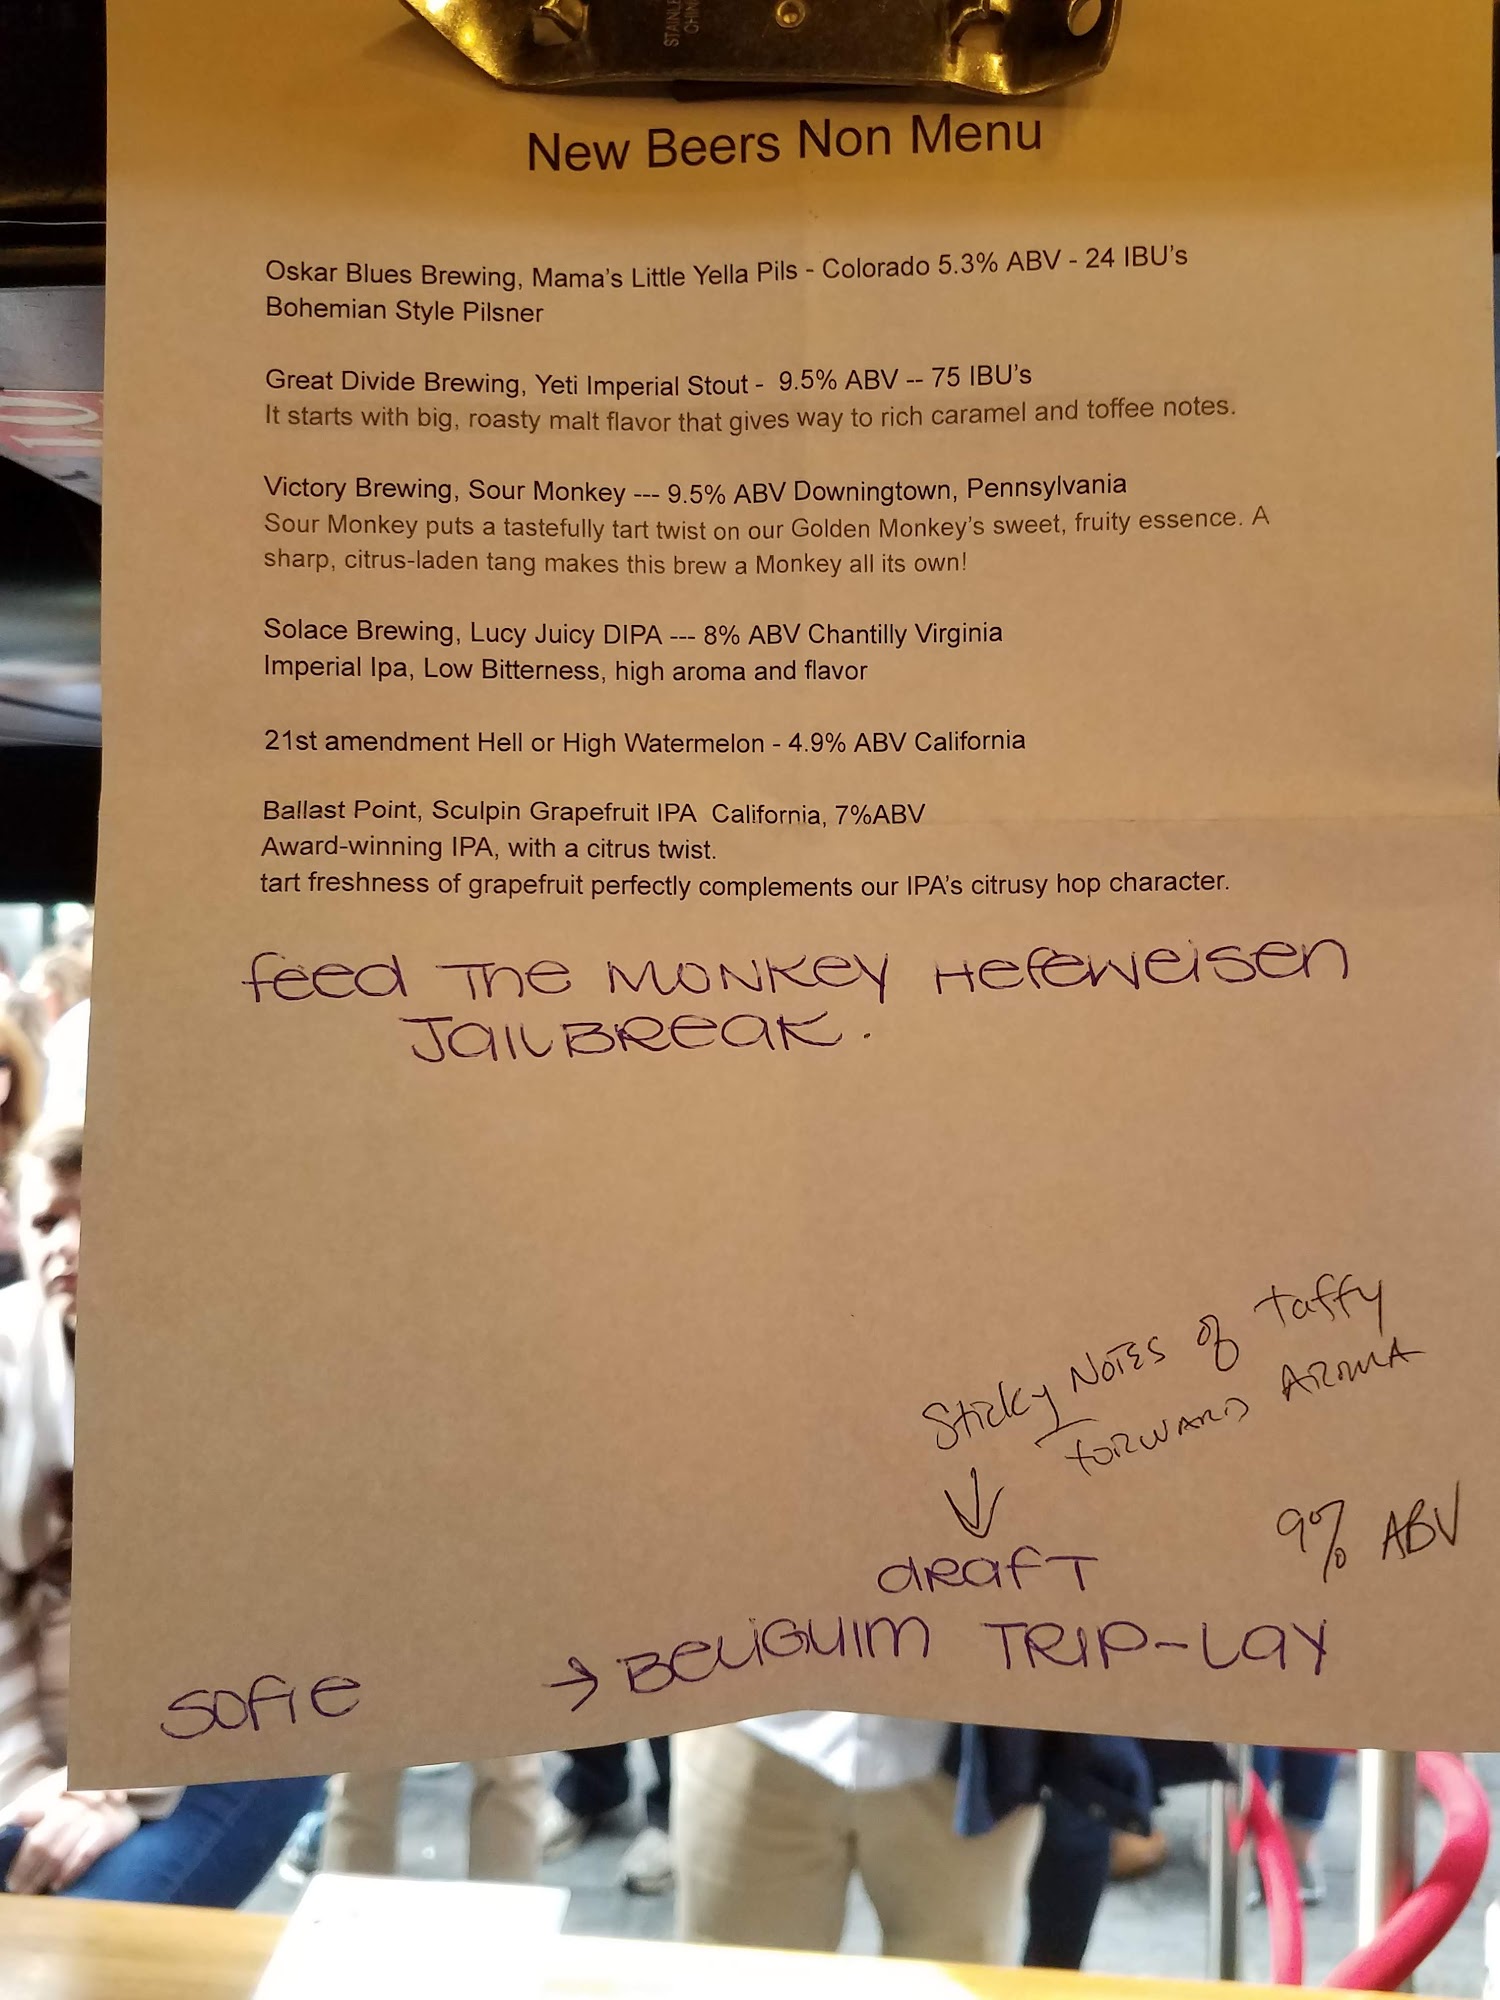 STAINLE
CHIN
New Beers Non Menu
Oskar Blues Brewing, Mama's Little Yella Pils - Colorado 5.3% ABV - 24 IBU's
Bohemian Style Pilsner
Great Divide Brewing, Yeti Imperial Stout - 9.5% ABV -- 75 IBU's
It starts with big, roasty malt flavor that gives way to rich caramel and toffee notes.
Victory Brewing, Sour Monkey --- 9.5% ABV Downingtown, Pennsylvania
Sour Monkey puts a tastefully tart twist on our Golden Monkey's sweet, fruity essence. A
sharp, citrus-laden tang makes this brew a Monkey all its own!
Solace Brewing, Lucy Juicy DIPA --- 8% ABV Chantilly Virginia
Imperial Ipa, Low Bitterness, high aroma and flavor
21st amendment Hell or High Watermelon - 4.9% ABV California
Ballast Point, Sculpin Grapefruit IPA California, 7%ABV
Award-winning IPA, with a citrus twist.
tart freshness of grapefruit perfectly complements our IPA's citrusy hop character.
feed The MONKEY Hefeweisen
JAILBREAK.
Sticky NOTES of taffy
FORWARD AROMA
9% ABV
draft
→ BELIGUIM TRIP-LAY
SOFIE